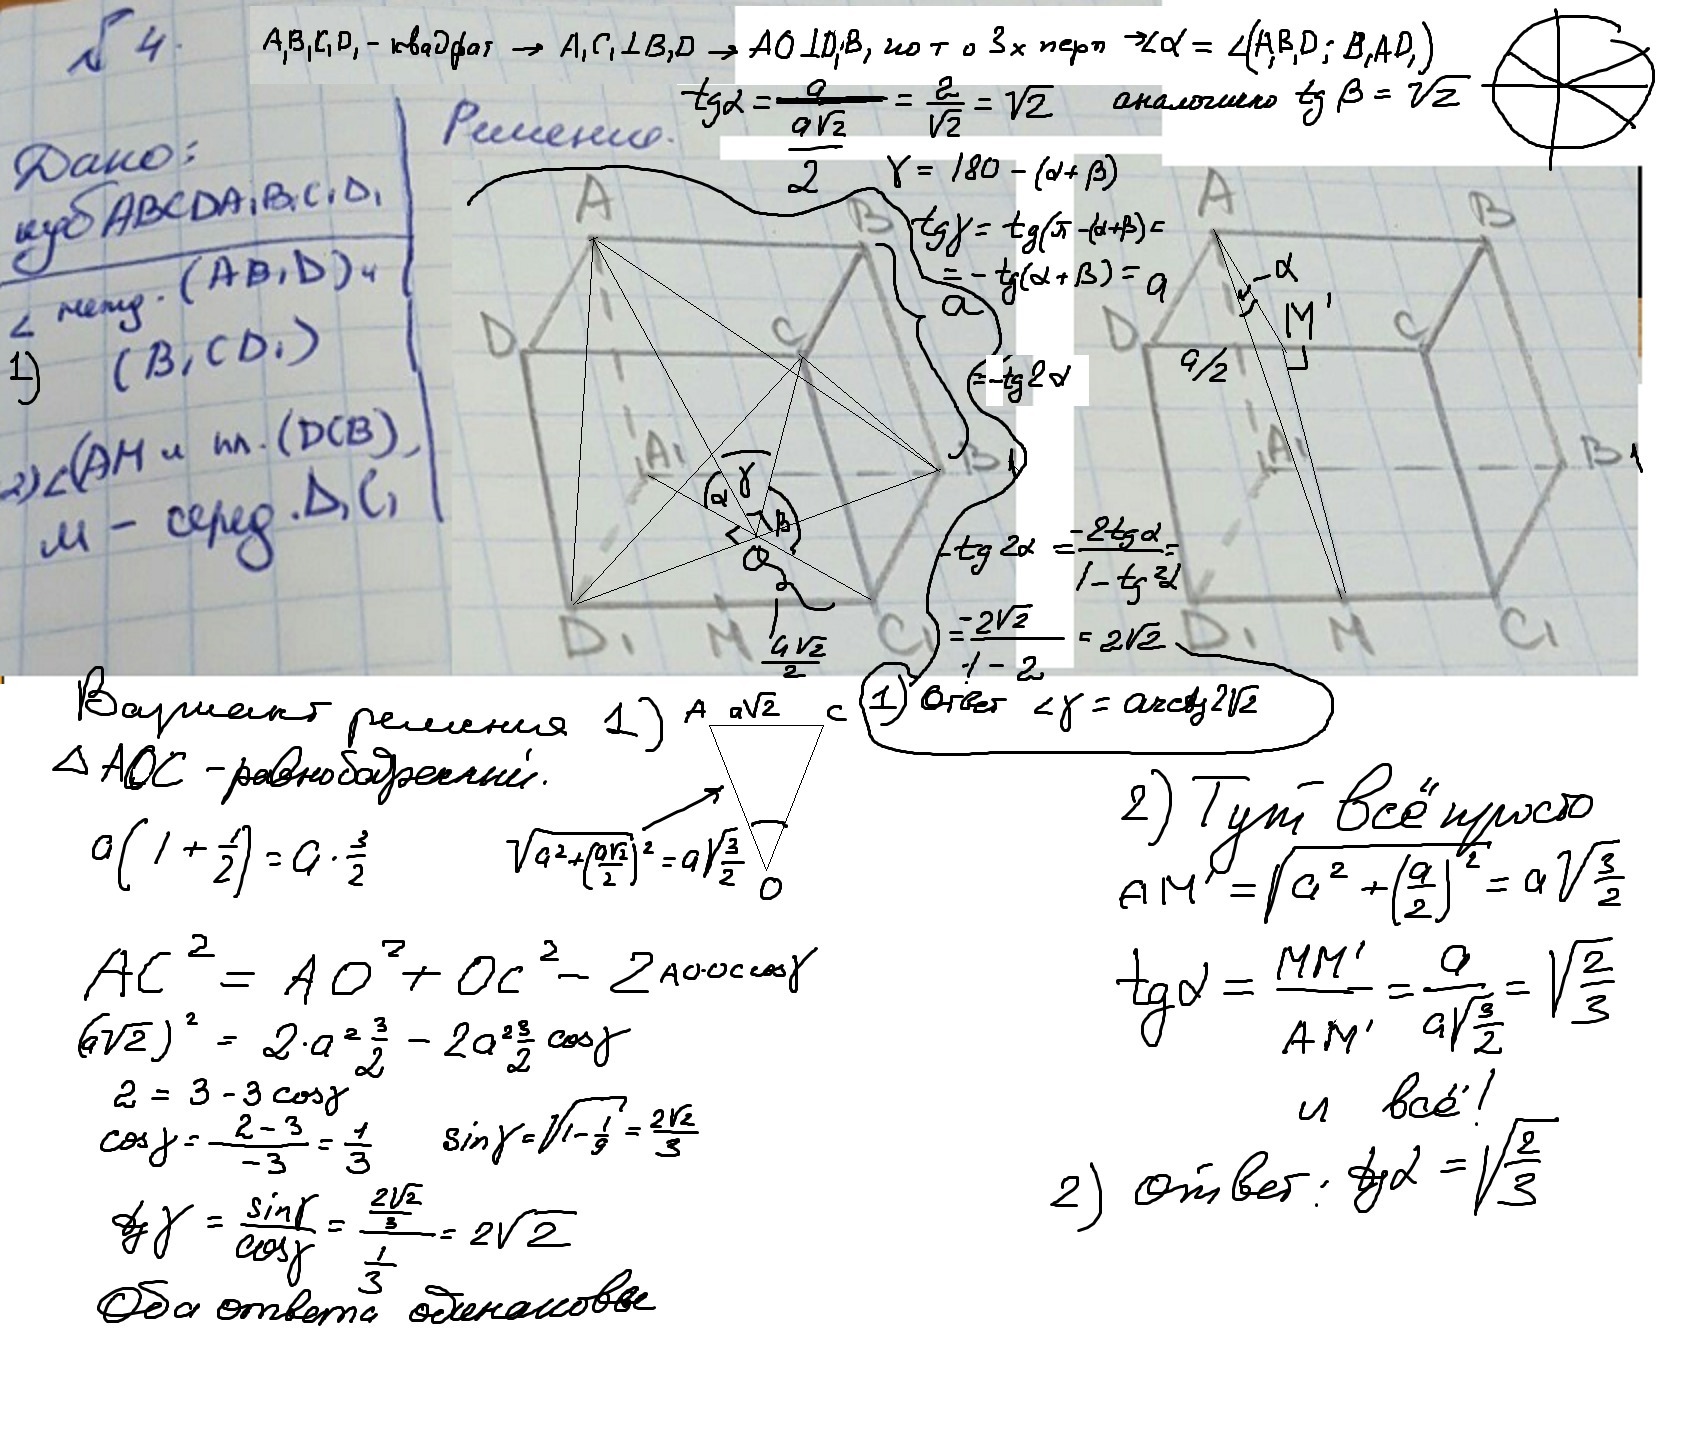 № 4.
A₁B₁C₁D₁ - квадрат → A₁C₁⊥B₁D → AO⊥D₁B₁ по т о 3х перп → ∠α = ∠(A₁B₁D; B₁AD₁)
tgα = a/(a√2/2) = 2/√2 = √2
аналогично tg β = √2
Дано:
куб ABCDA₁B₁C₁D₁
∠ межд. (AB₁D) и
1) (B₁CD₁)
2) ∠(AM и пл. (DCB),
M – серед. D₁C₁
Решение.
γ = 180 - (α+β)
tgγ = tg(π-(α+β) =
= -tg(α+β) =
= -tg2α
-tg2α = -2tgα/(1-tg²α) =
= -2√2/(1-2) = 2√2
1) Ответ ∠γ = arctg2√2
A
B
D
C
A₁
B1
D₁
M
C₁
a
α
γ
β
O
a√2/2
A
B
D
C
α
M'
a
a/2
A₁
B1
D₁
M
C₁
Вариант решения 1)
△AOC - равнобедренный.
A a√2 C
O
a(1 + 1/2) = a · 3/2
√(a²+(a√2/2)²) = a√(3/2)
AC² = AO² + OC² - 2AO·OC cosγ
(a√2)² = 2·a² 3/2 - 2a² 3/2 cosγ
2 = 3 - 3 cosγ
cosγ = (2-3)/(-3) = 1/3
sinγ = √(1-1/9) = 2√2/3
tgγ = sinγ/cosγ = (2√2/3)/(1/3) = 2√2
Оба ответа одинаковы
2) Тут всё просто
AM' = √(a² + (a/2)²) = a√(3/2)
tgα = MM'/AM' = a/(a√(3/2)) = √(2/3)
и всё!
2) Ответ: tgα = √(2/3)